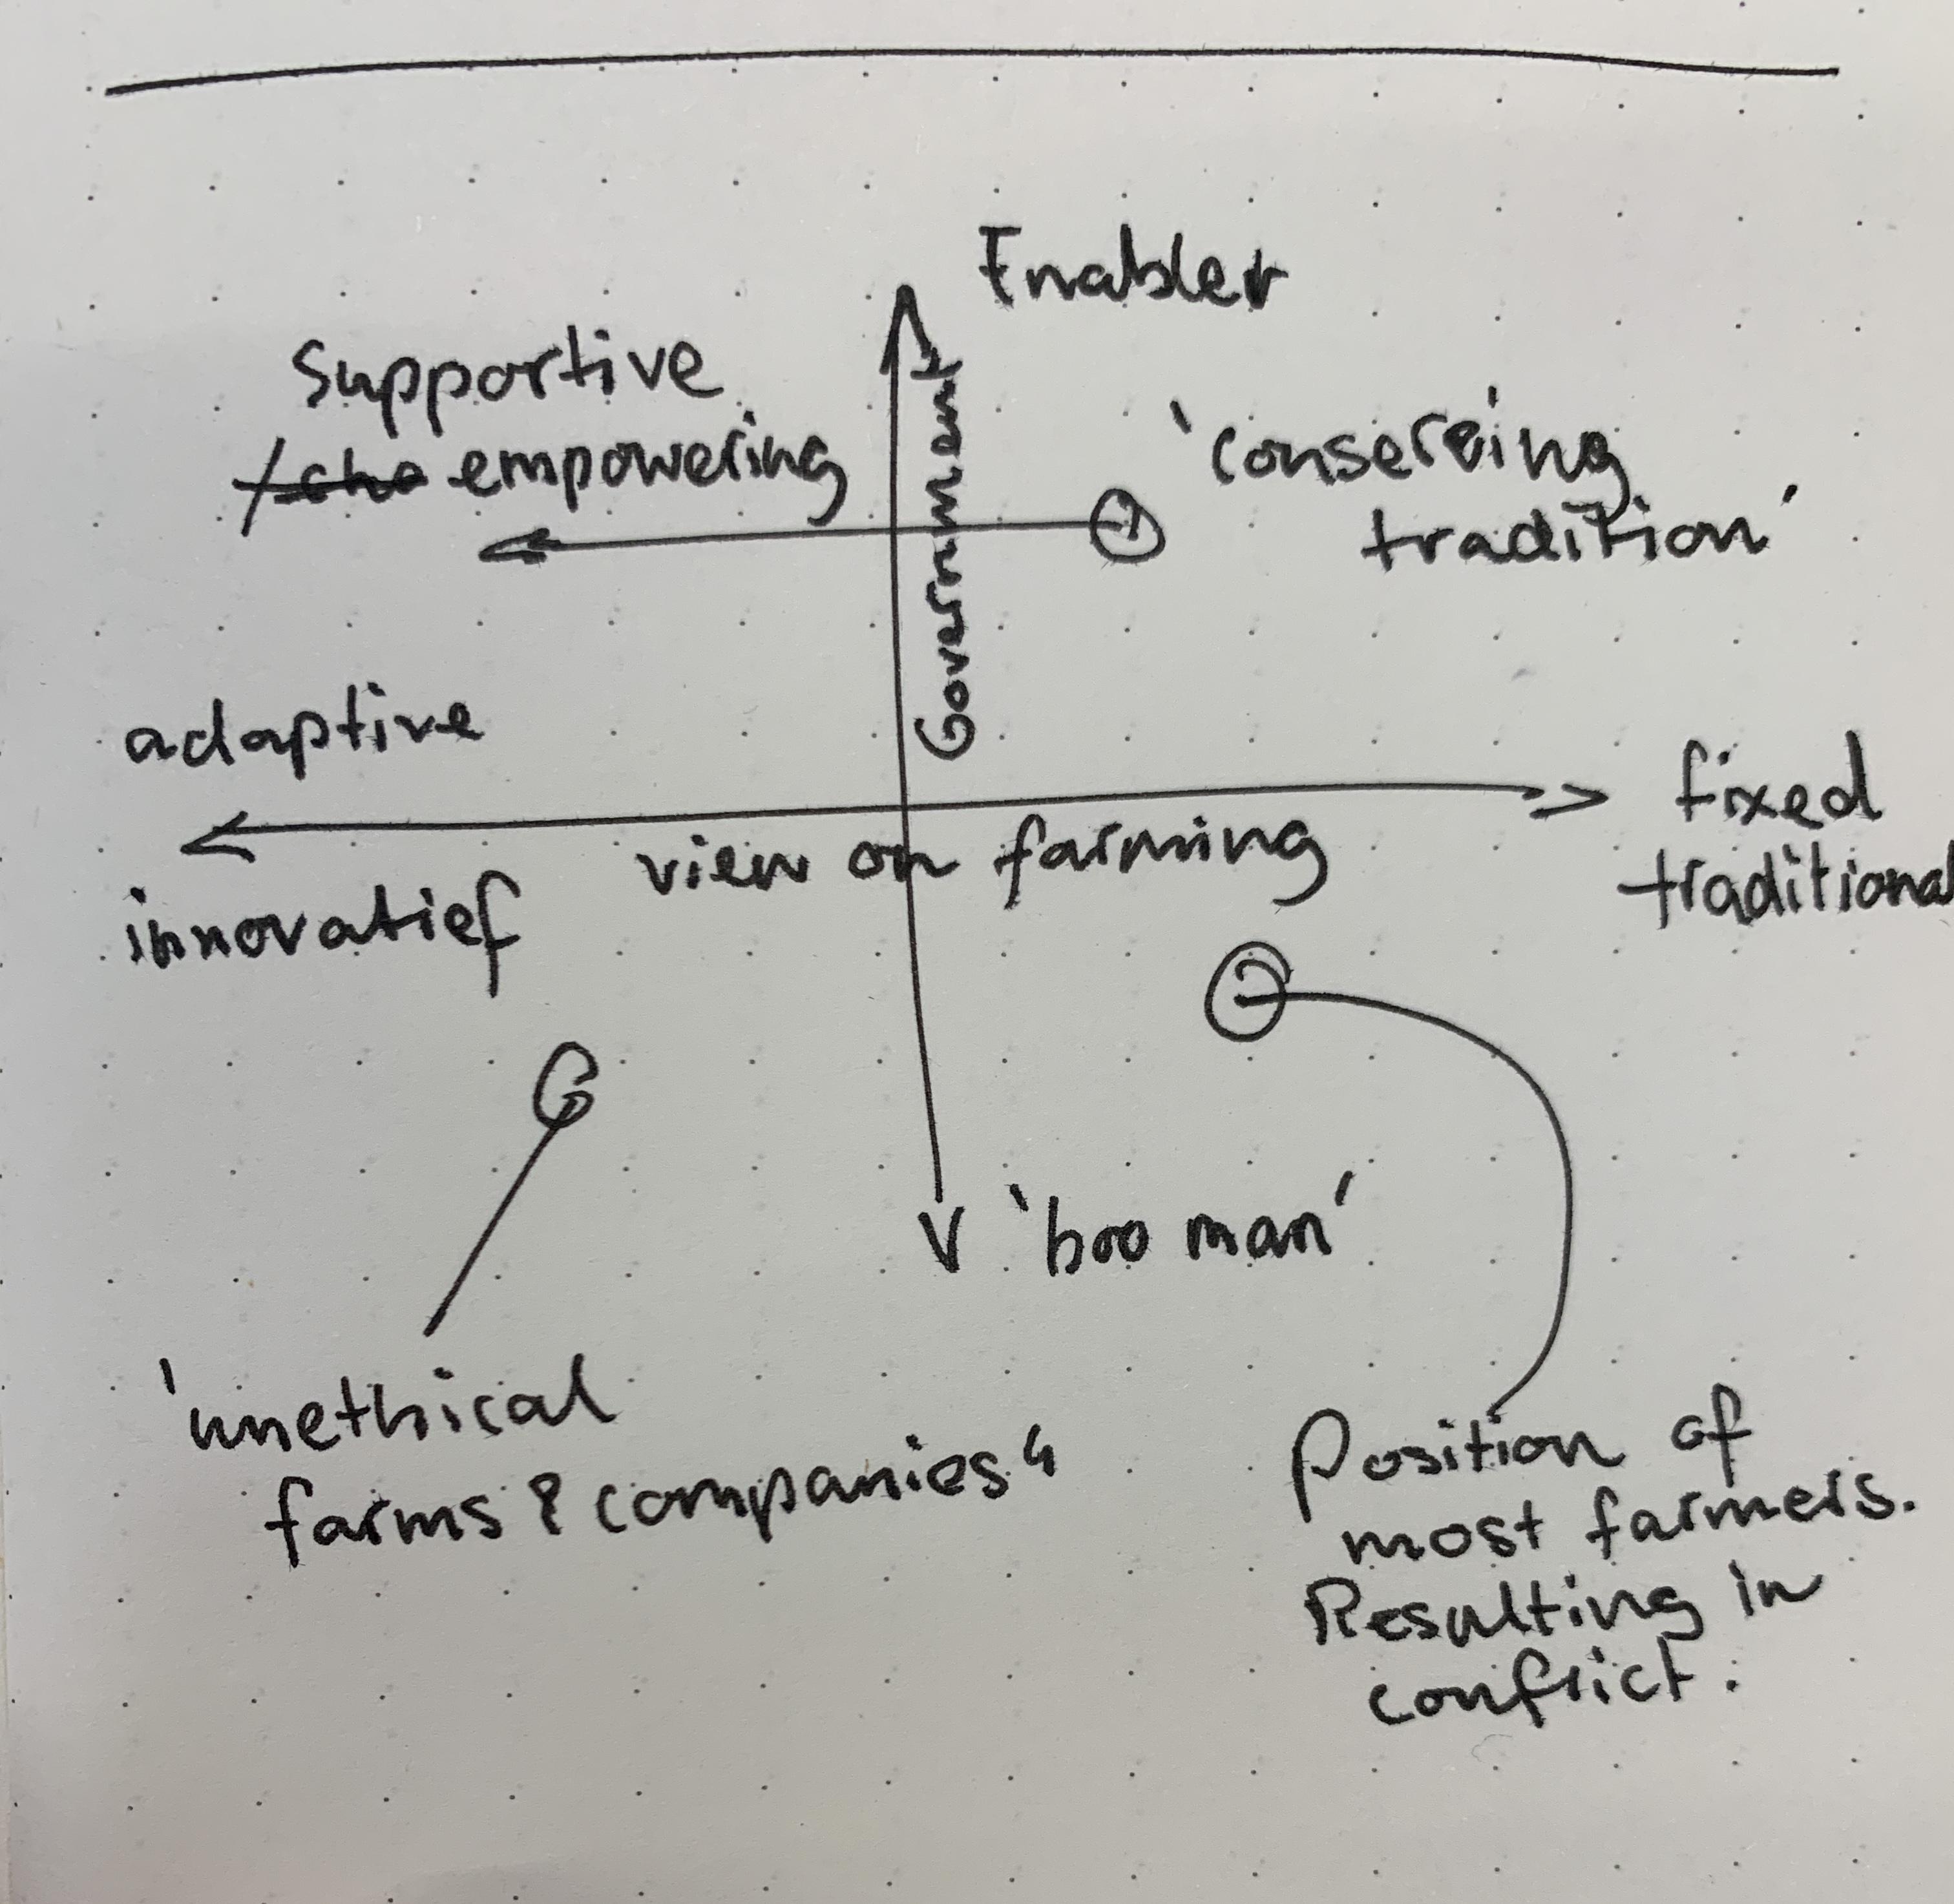 Enabler
Supportive
/ empowering
Government
'conserving
tradition'
adaptive
fixed
traditional
view on farming
innovatief
'boo man'
'unethical
farms & companies"
Position of
most farmers.
Resulting in
conflict.